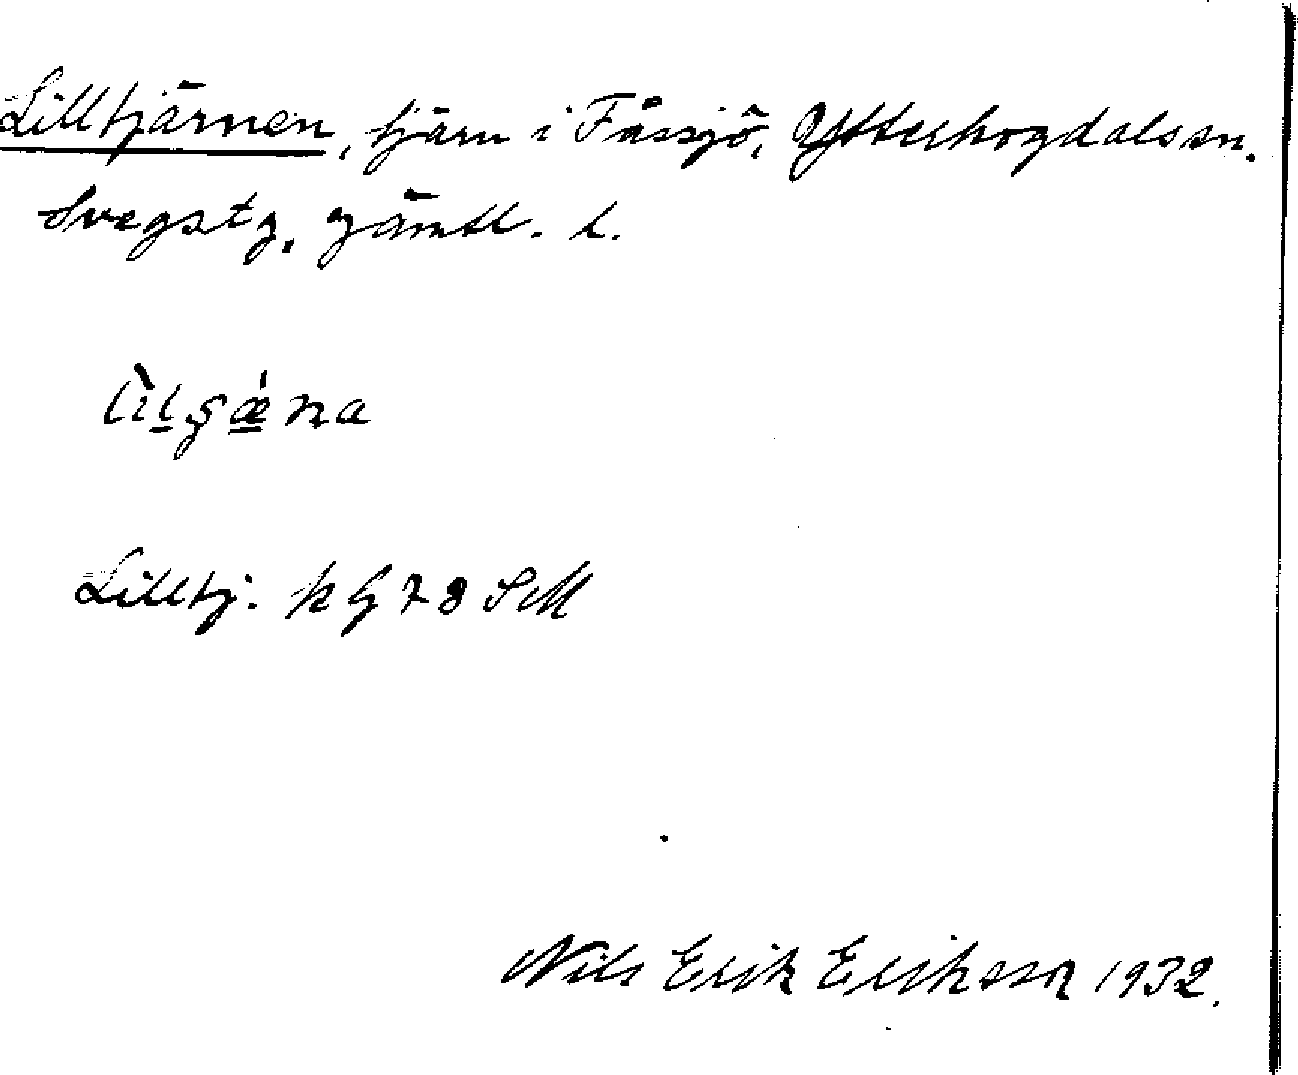 Lilltjärnen, tjärn i Fåssjö, Ytterhogdals sn.
Svegs tg, Jämtl. l.
Lilltj. k G 78 SM
Nils Erik Eriksson 1932.